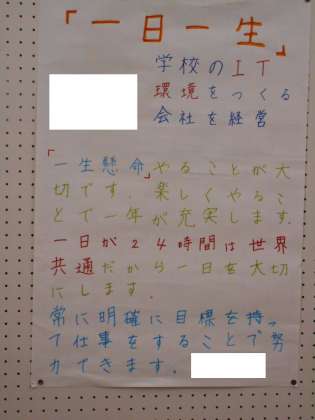 「一日一生」
学校のIT
環境をつくる
会社を経営
「一生懸命」やることが大
切です。楽しくやるこ
とで一年が充実します。
一日が24時間は世界
共通だから一日を大切
にします。
常に明確に目標を持っ
て仕事をすることで努
力できます。